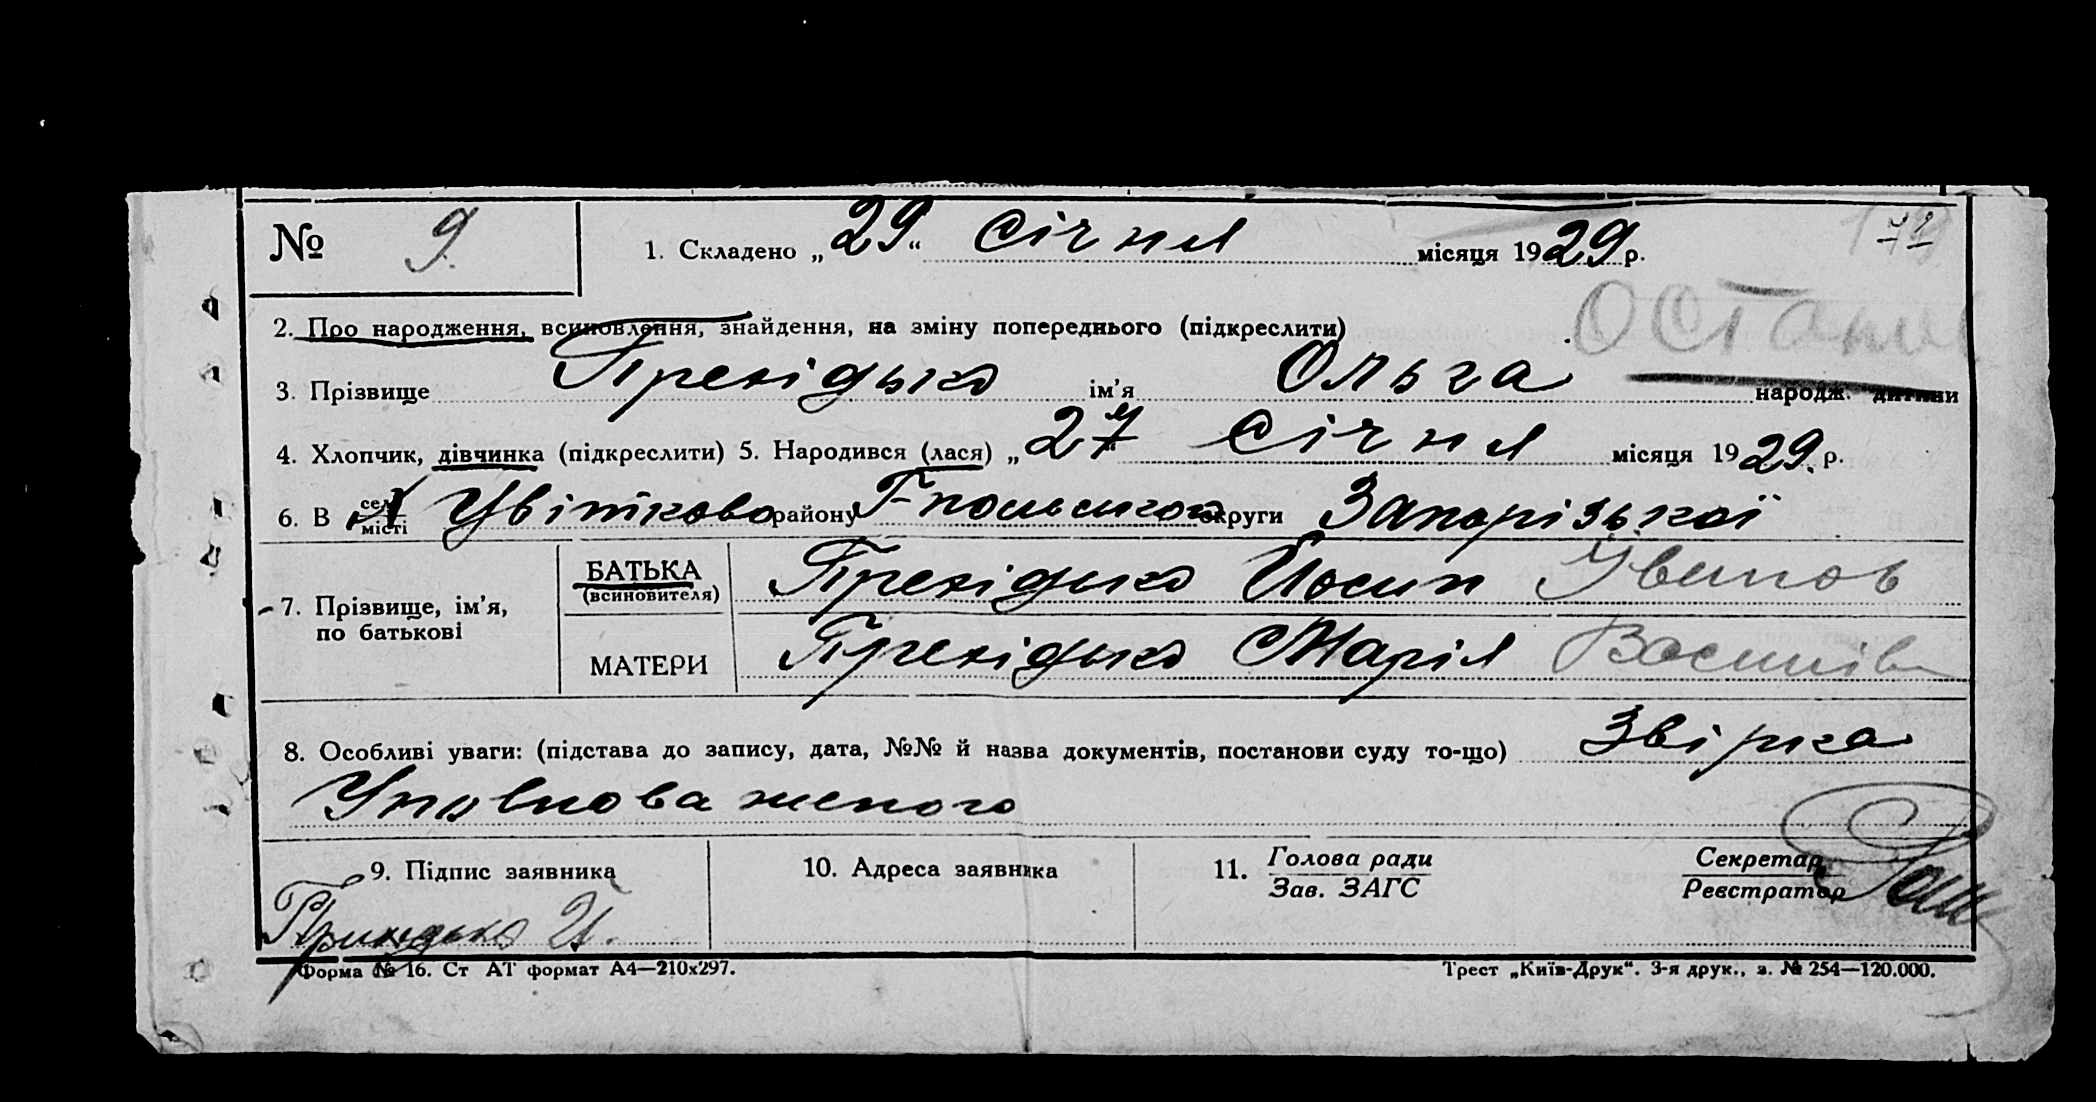 № 9.
1. Складено „29“ Січня місяця 1929 р.
71
2. Про народження, всиновлення, знайдення, на зміну попереднього (підкреслити)
3. Прізвище ім’я Ольга народж. дитини
4. Хлопчик, дівчинка (підкреслити) 5. Народився (лася) „27 Січня місяця 1929 р.
6. В селі місті Цвітково району Г-польского округи Запорізької
7. Прізвище, ім’я, по батькові
БАТЬКА (всиновителя) Йосип Іванов
МАТЕРИ Марія Василів
8. Особливі уваги: (підстава до запису, дата, №№ й назва документів, постанови суду то-що) Звірка
9. Підпис заявника
10. Адреса заявника
11. Голова ради
Зав. ЗАГС
Секретар
Реєстратор
Форма № 16. Ст АТ формат А4—210х297.
Трест „Київ-Друк“. 3-я друк., з. № 254—120.000.